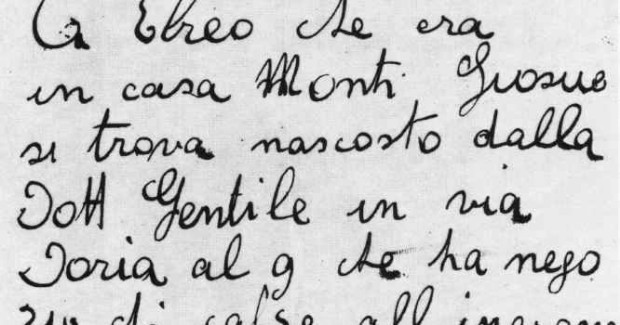 Ebreo che era
in casa Monti Giosue
si trova nascosto dalla
Dott Gentile in via
Doria al 9 che ha nego
zio di calse all